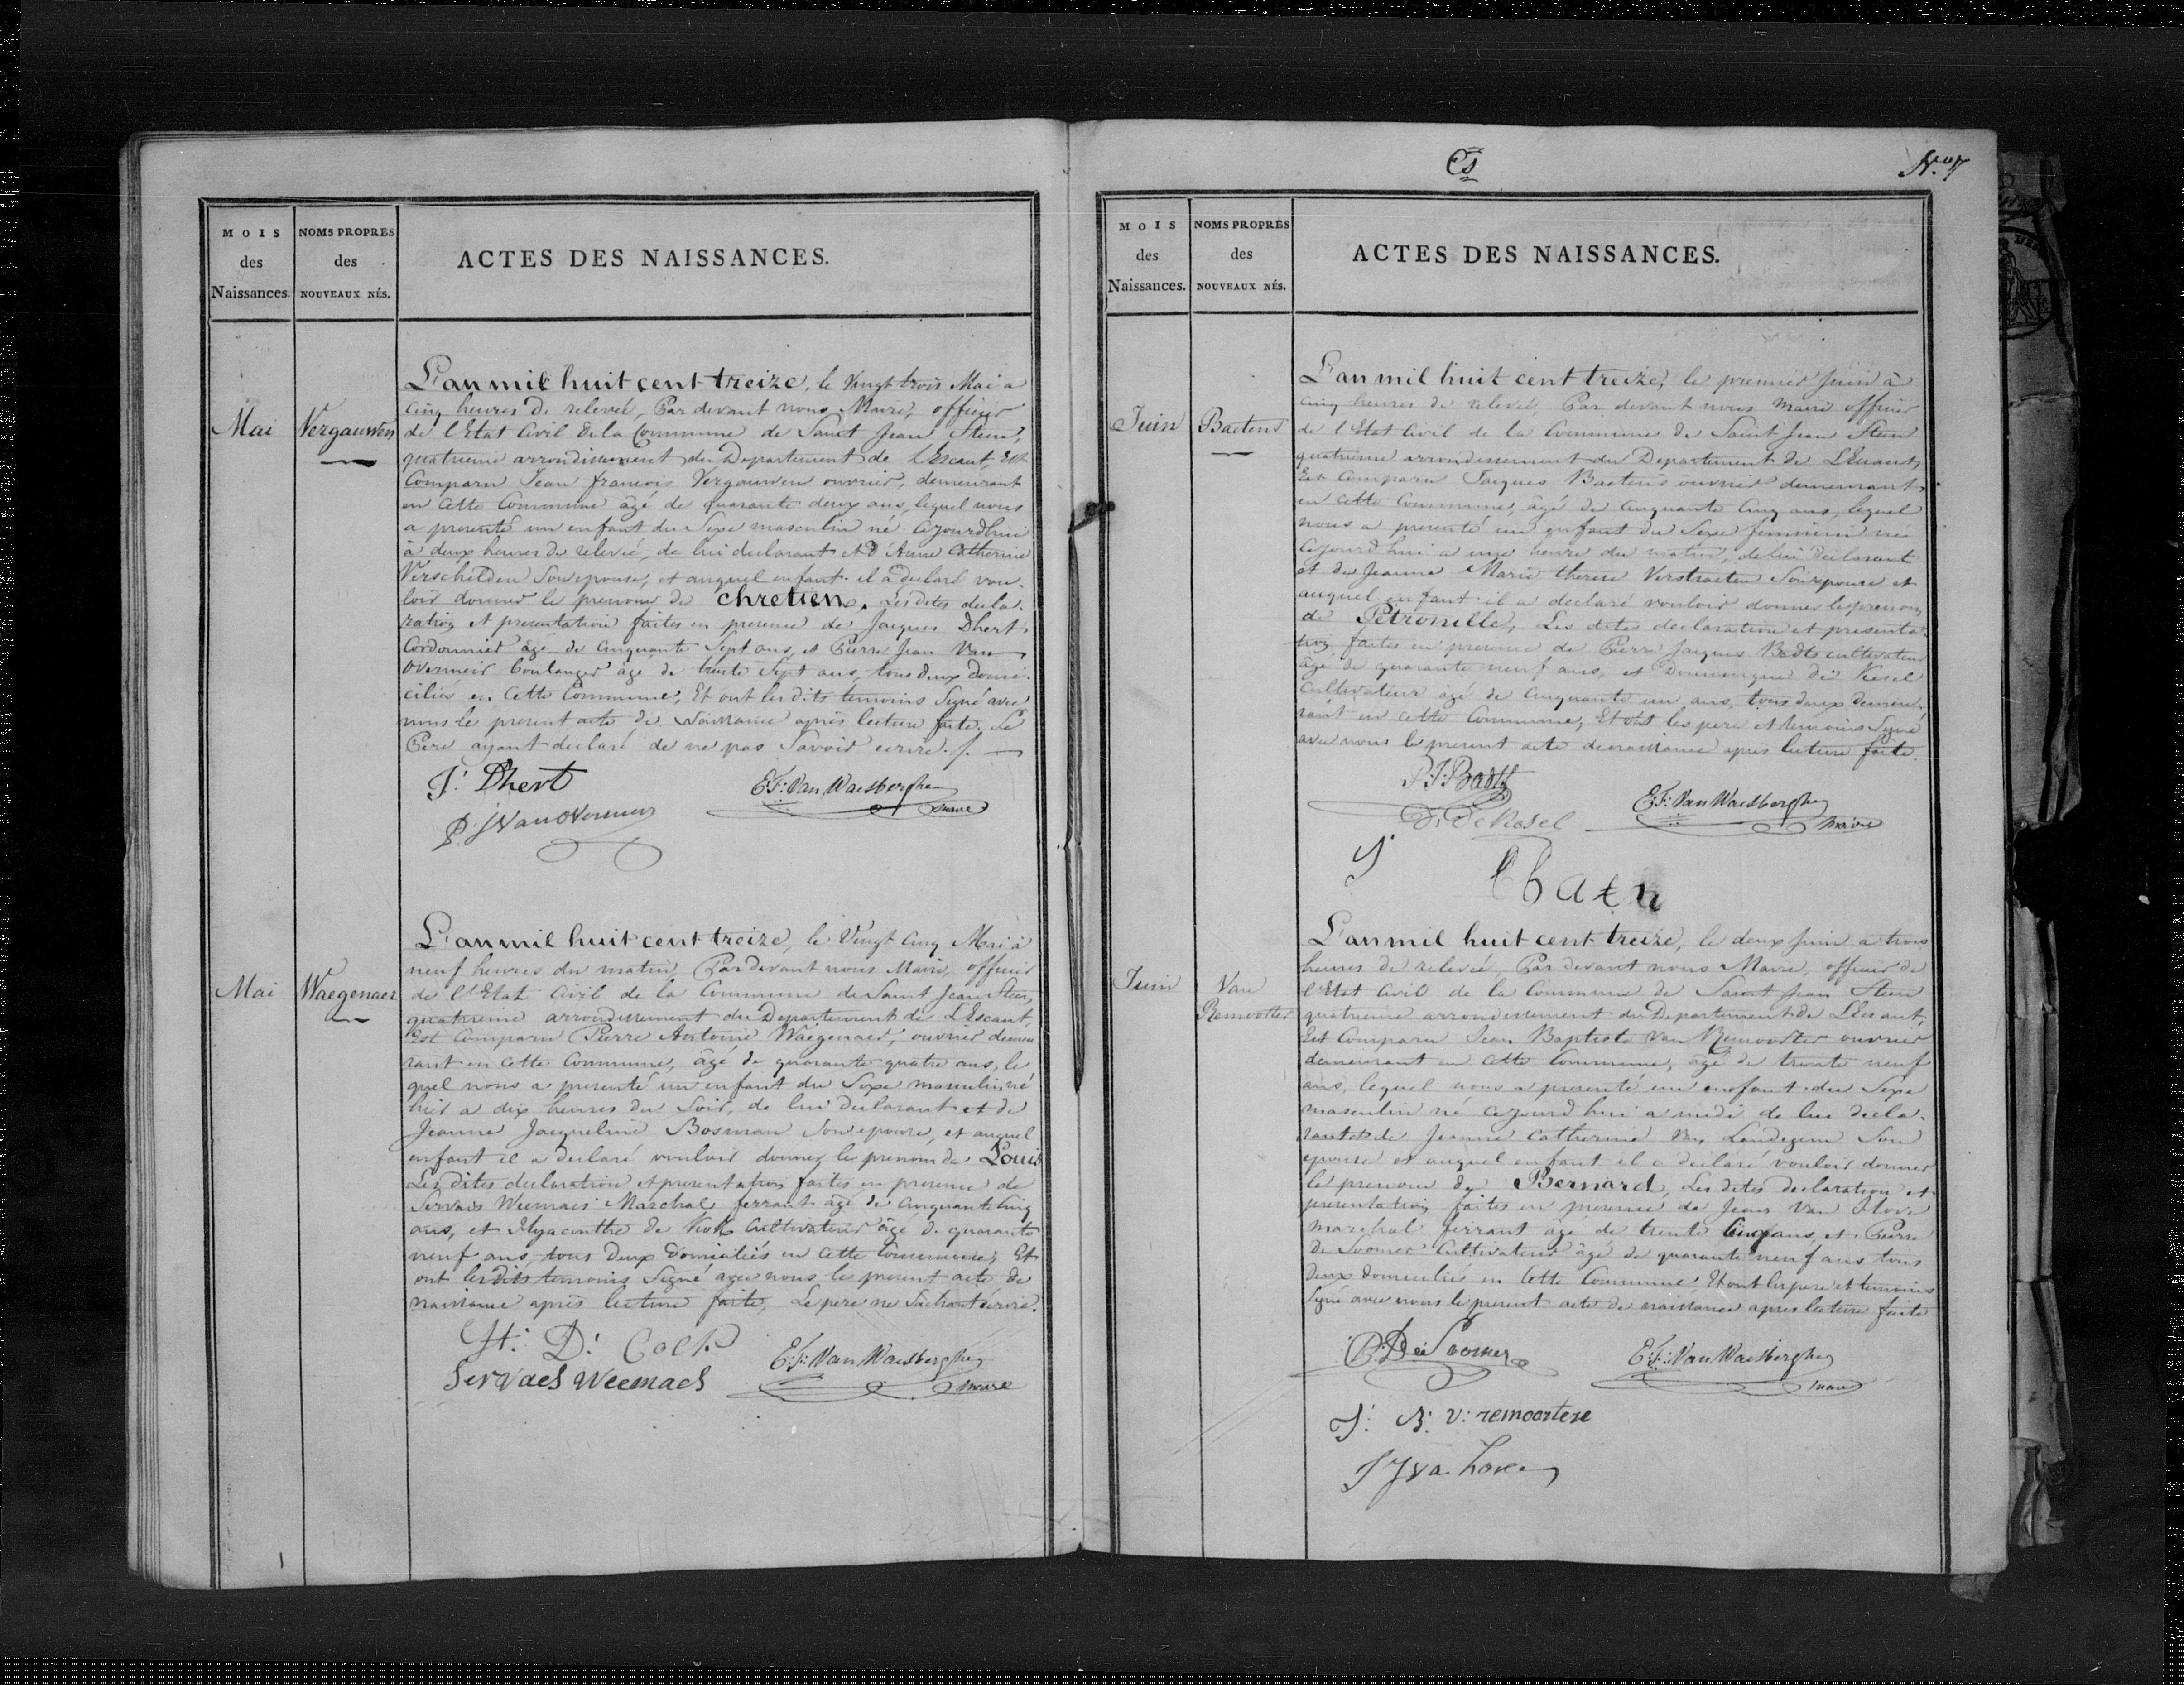 MOIS
des
Naissances.
NOMS PROPRES
des
NOUVEAUX NÉS.
ACTES DES NAISSANCES.
Mai
Vergauwen
L'an mil huit cent treize, le Vingt trois Mai a
cinq heures de relevée, Par devant nous Maire, officier
de l'Etat Civil de la Commune de Saint Jean Steen,
quatrieme arrondissement du Departement de L'Escaut, Est
Comparu Jean francois Vergauwen ouvrier, demeurant
en cette Commune âgé de quarante deux ans, lequel nous
a presenté un enfant du Sexe masculin né cejourdhui
à deux heures de relevée, de lui declarant et d'Anne Catherine
Verschelden Son epouse, et auquel enfant il a declaré vou-
loir donner le prenom de Chretien. Les dites decla-
ration et presentation faites en presence de Jacques Dhert
Cordonnier âgé de cinquante Sept ans, et Pierre Jean Van
Overmeir boulanger âgé de trente Sept ans, tous deux domi-
ciliés en Cette Commune, Et ont les dits temoins Signé avec
nous le present acte de naissance après lecture faite. Le
Pere ayant declaré de ne pas Savoir ecrire./.
J: Dhert
E:F: Van Waesberghe
maire
P: J Van overmeir
Mai
Waegenaer
L'an mil huit cent treize, le Vingt Cinq Mai à
neuf heures du matin, Par devant nous Maire, officier
de l'Etat Civil de la Commune de Saint Jean Steen,
quatrieme arrondissement du Departement de L'Escaut,
Est Comparu Pierre Antoine Waegenaer, ouvrier demeu
rant en cette Commune, âgé de quarante quatre ans, le
quel nous a presenté un enfant du Sexe masculin né
hier a dix heures du Soir, de lui declarant et de
Jeanne Jacqueline Bosman Son epouse, et auquel
enfant il a declaré vouloir donner le prenom de Louis
Les dites declaration et presentation faites en presence de
Servaes Weemaes Marechal ferrant âgé de cinquante cinq
ans, et Hyacinthe de Kock Cultivateur âgé de quarante
neuf ans, tous deux domiciliés en cette Commune, Et
ont les dits temoins Signé avec nous le present acte de
naissance après lecture faite, Le pere ne Sachant écrire.
H: D: Cock
E:F: Van Waesberghe
maire
Servaes Weemaes
N.º 7
MOIS
des
Naissances.
NOMS PROPRES
des
NOUVEAUX NÉS.
ACTES DES NAISSANCES.
Juin
Baetens
L'an mil huit cent treize, le premier Juin à
cinq heures de relevée, Par devant nous Maire officier
de l'Etat Civil de la Commune de Saint Jean Steen
quatrieme arrondissement du Departement de L'Escaut,
Est Comparu Jacques Baetens ouvrier demeurant
en cette Commune, âgé de cinquante cinq ans, lequel
nous a presenté un enfant du Sexe feminin née
cejourdhui a une heure du matin, de lui declarant
et de Jeanne Marie therese Verstraeten Son epouse et
auquel enfant il a declaré vouloir donner le prenom
de Petronille, Les dites declaration et presenta-
tion faites en presence de Pierre Jacques Badts cultivateur
âgé de quarante neuf ans, et Dominique de Kesel
Cultivateur âgé de cinquante un ans, tous deux demeu-
rant en cette Commune, Et ont les pere et temoins Signé
avec nous le present acte de naissance après lecture faite.
P:J: Badts
E:F: Van Waesberghe
maire
D: De Kesel
Juin
Van
Remoorter
L'an mil huit cent treize, le deux Juin a trois
heures de relevée, Par devant nous Maire, officier de
l'Etat Civil de la Commune de Saint Jean Steen
quatrieme arrondissement du Departement de L'Escaut,
Est Comparu Jean Baptiste Van Remoorter ouvrier
demeurant en cette Commune, âgé de trente neuf
ans, lequel nous a presenté un enfant du Sexe
masculin né cejourdhui a midi de lui decla-
rant et de Jeanne Catherine Van Landegem Son
epouse et auquel enfant il a declaré vouloir donner
le prenom de Bernard, Les dites declaration et
presentation faites en presence de Jean Van Hove
marechal ferrant âgé de trente Cinq ans, et Pierre
de Soomer Cultivateur âgé de quarante neuf ans tous
deux domiciliés en Cette Commune, Et ont les pere et temoins
Signé avec nous le present acte de naissance après lecture faite
P: De Soomer
E:F: Van Waesberghe
maire
J: B: V: remoortere